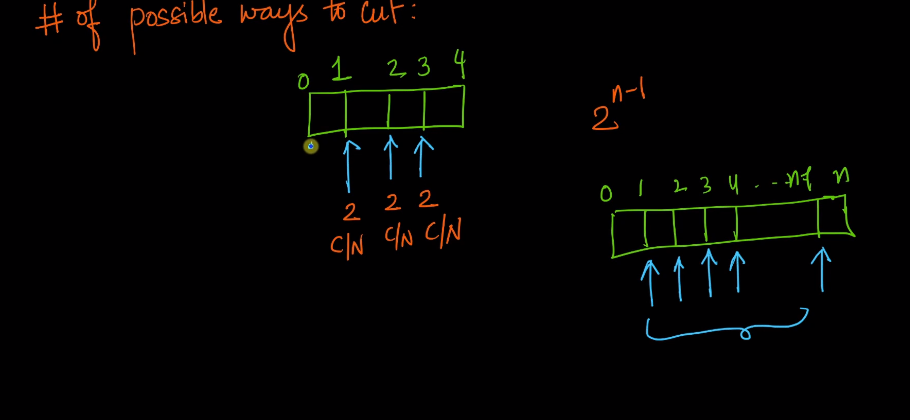 # of possible ways to cut:
0 1 2 3 4
2 2 2
C/N C/N C/N
2^{n-1}
0 1 2 3 4 . . . n-1 n